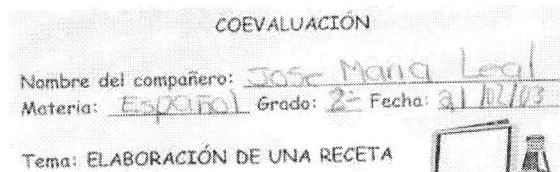 COEVALUACIÓN
Nombre del compañero: Jose Maria Leal
Materia: Español Grado: 2º Fecha: 21/02/03
Tema: ELABORACIÓN DE UNA RECETA